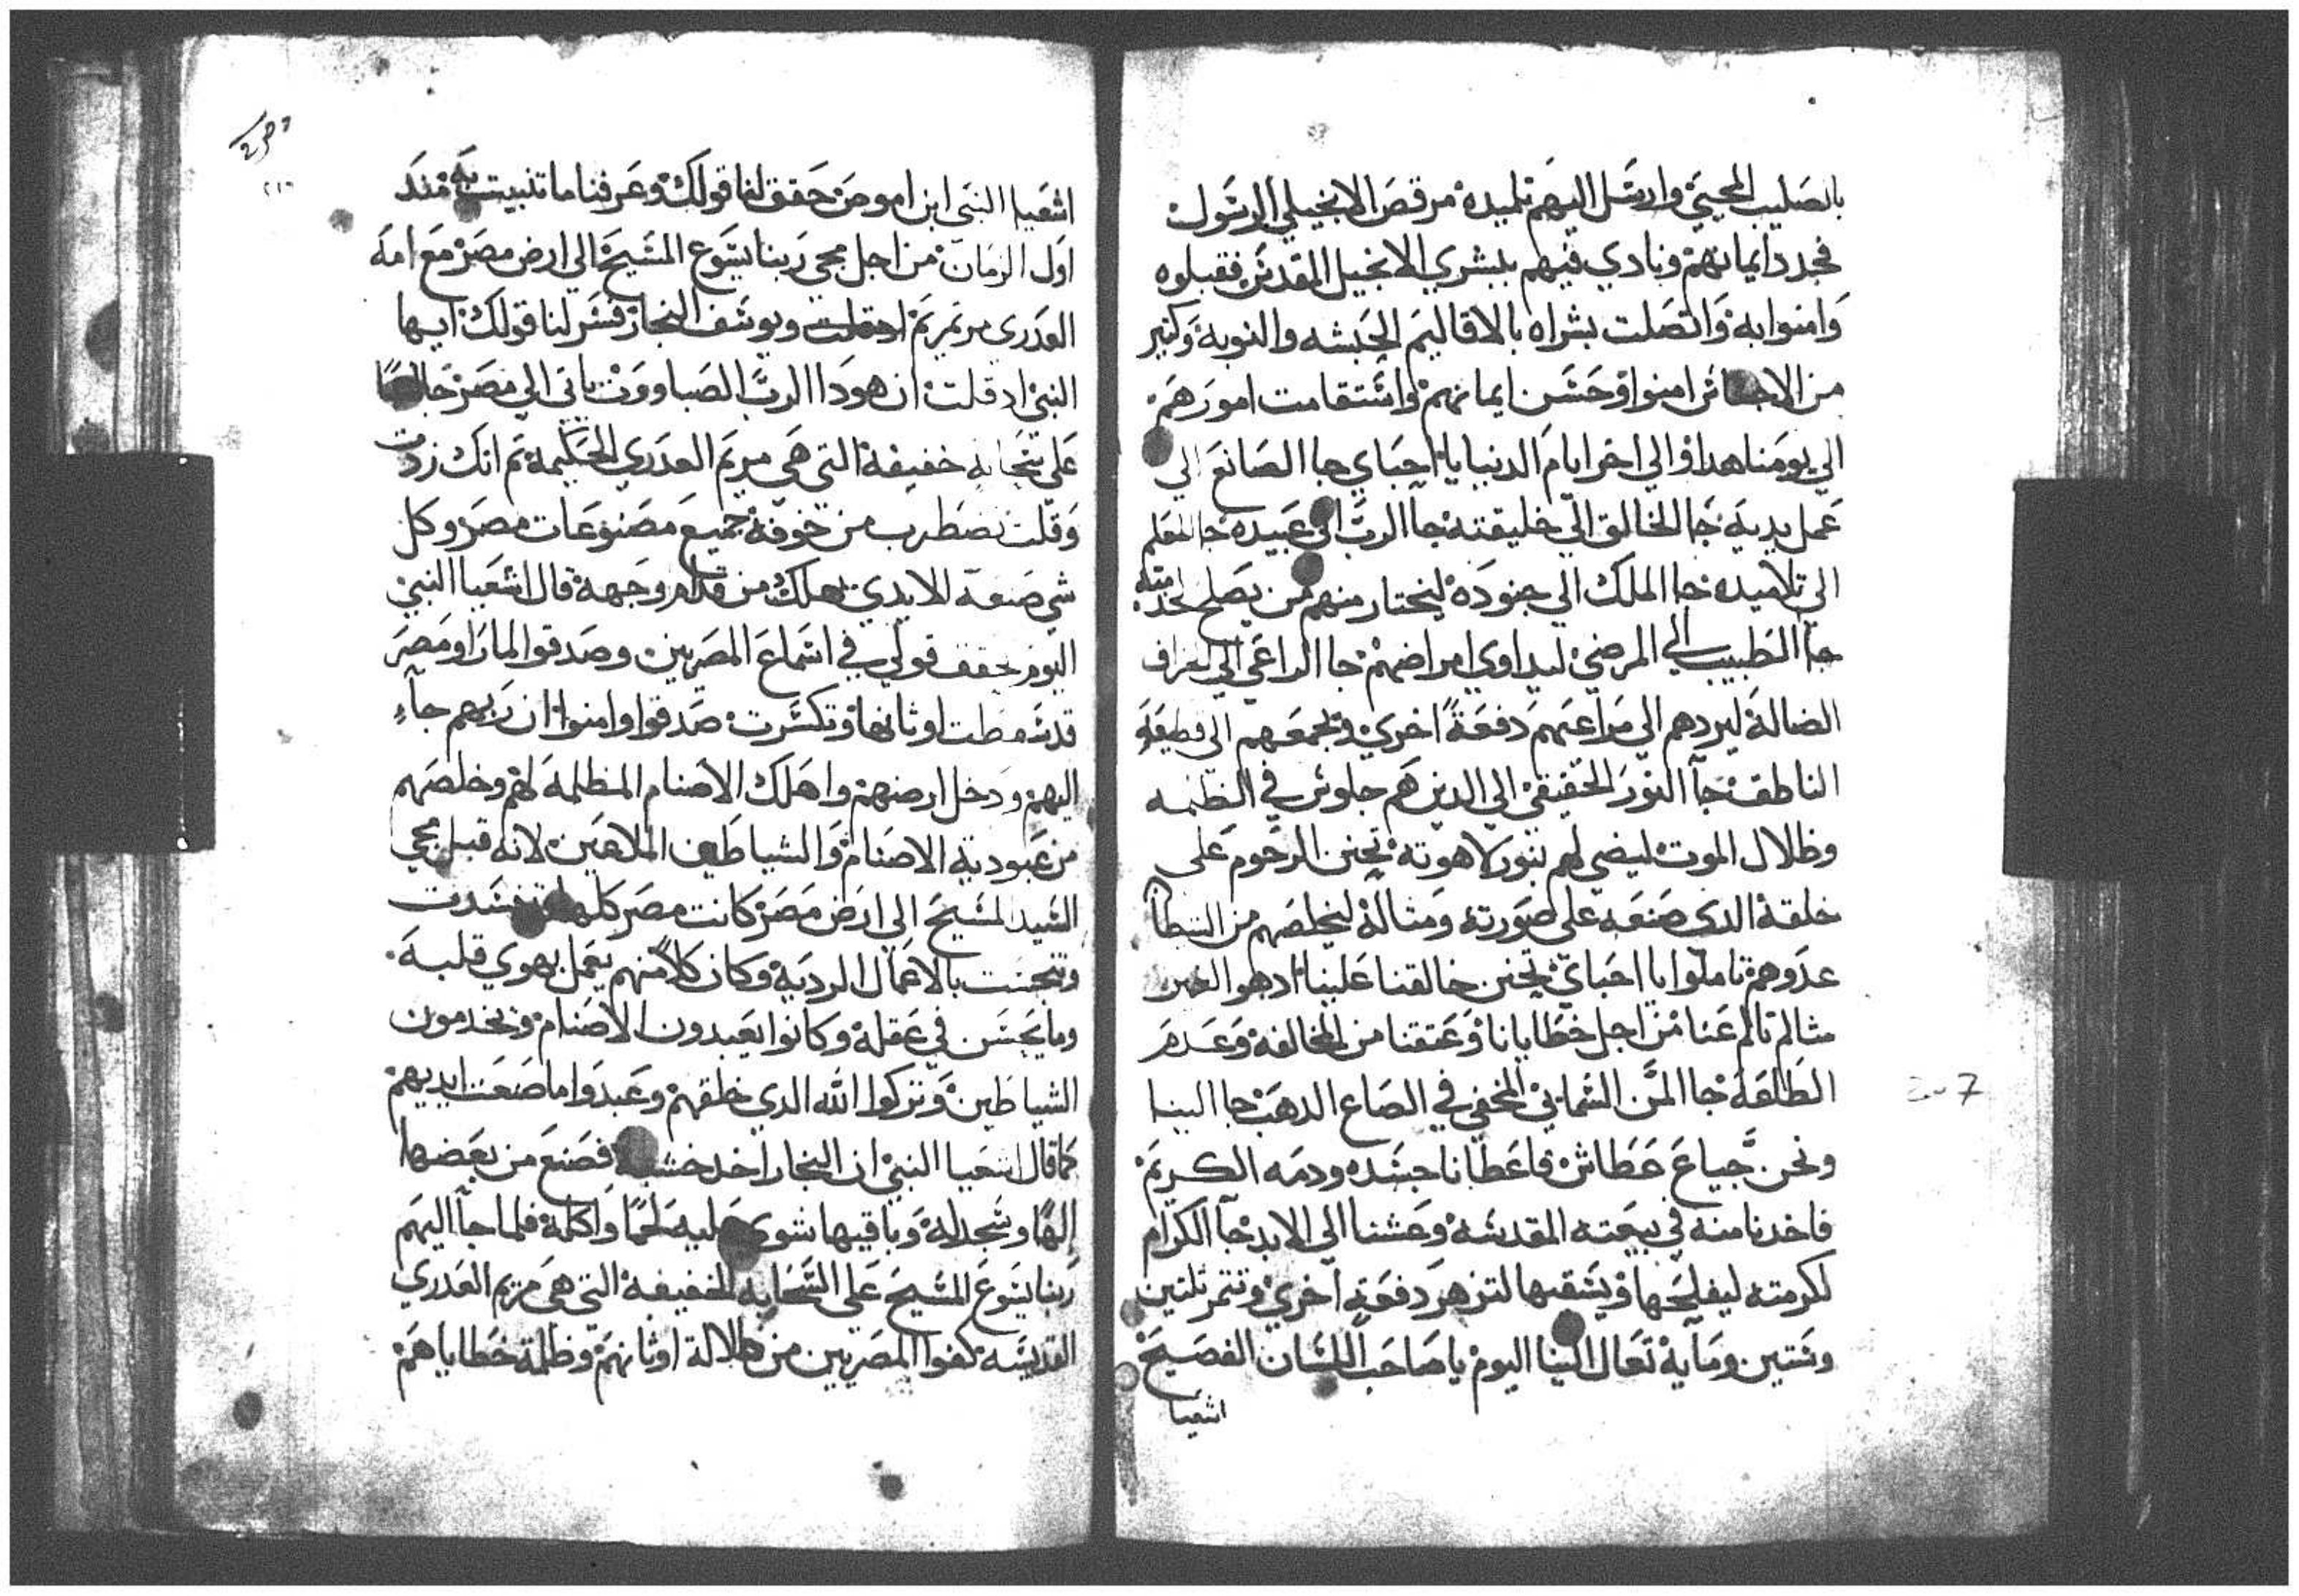 بالصليب المحيي وارسل اليهم تلميده مرقص الانجيلي الرسول
فجدد ايمانهم ونادي فيهم ببشري الانجيل المقدس فقبلوه
وامنوا به واتصلت بشراه بالاقاليم الحبشه والنوبة وكثير
من الاجناس امنوا وحسن ايمانهم واستقامت امورهم
الي يومنا هدا والي اخر ايام الدنيا يا احباي جا الصانع الي
عمل يديه جا الخالق الي خليقته جا الرب الي عبيده جا المعلم
الي تلاميده جا الملك الي جنوده ليختار منهم من يصلح لخدمته
جا الطبيب الي المرضي ليداوي امراضهم جا الراعي الي الخراف
الضالة ليردهم الي مراعيهم دفعة اخري ويجمعهم الي قطيعه
الناطق جآ النور الحقيقي الي الدين هم جلوس في الظلمه
وظلال الموت ليضي لهم بنور لاهوته تحنن الرحوم علي
خلقة الدي صنعه علي صورته ومثالة ليخلصهم من الشيطان
عدوهم تاملوا يا احباي تحنن خالقنا علينا ادهو الغير
متالم تالم عنا من اجل خطايانا وعتقنا من المخالفة وعدم
الطاعة جا المن السمايي المخفي في الصاع الدهب جا الينا
ونحن جياع عطاش فاعطانا جسده ودمه الكريم
فاخدنا منه في بيعته المقدسة وعشنا الي الابد جآ الكرام
لكرمته ليفلحها ويسقيها لتزهر دفعة اخري وتتمر تلتين
وستين ومآية تعال الينا اليوم يا صاحب اللسان الفصيح
اشعيا
اشعيا النبي ابن اموص حقق لنا قولك وعرفنا ما تنبيت به مند
اول الزمان من اجل مجي ربنا يسوع المسيح الي ارض مصر مع امه
العدري مرتمريم ويوسف النجار فسر لنا قولك ايها
النبي اد قلت ان هودا الرب الصباووت ياتي الي مصر جالسا
علي سحابة خفيفة التي هي مريم العدري الحكيمة تم انك زدت
وقلت تضطرب من خوفة جميع مصنوعات مصر وكل
شي صنعة الايدي تهلك من قدام وجهة قال اشعيا النبي
اليوم تحقق قولي في اسماع المصريين وصدقوا لما راو مصر
قد سقطت اوثانها وتكسرت صدقوا وامنوا ان ربهم جآء
اليهم ودخل ارضهم واهلك الاصنام المظلمة لهم وخلصهم
من عبودية الاصنام والشياطين الملاعين لانه قبل مجي
السيد المسيح الي ارض مصر كانت مصر كلها فسدت
وتنجست بالاعمال الردية وكان كلا منهم يعمل بهوي قلبة
وما يحسن في عقلة وكانوا يعبدون الاصنام ويخدمون
الشياطين وتركوا الله الدي خلقهم وعبدوا ما صنعت ايديهم
كما قال اشعيا النبي ان النجار اخد خشبة فصنع من بعضها
إلها وسجد له وباقيها شوي عليه لحما واكلة فلما جآ اليهم
ربنا يسوع المسيح علي السحابه الخفيفة التي هي مريم العدري
القديسة كفوا المصريين من ضلالة اوثانهم وظلمة خطاياهم